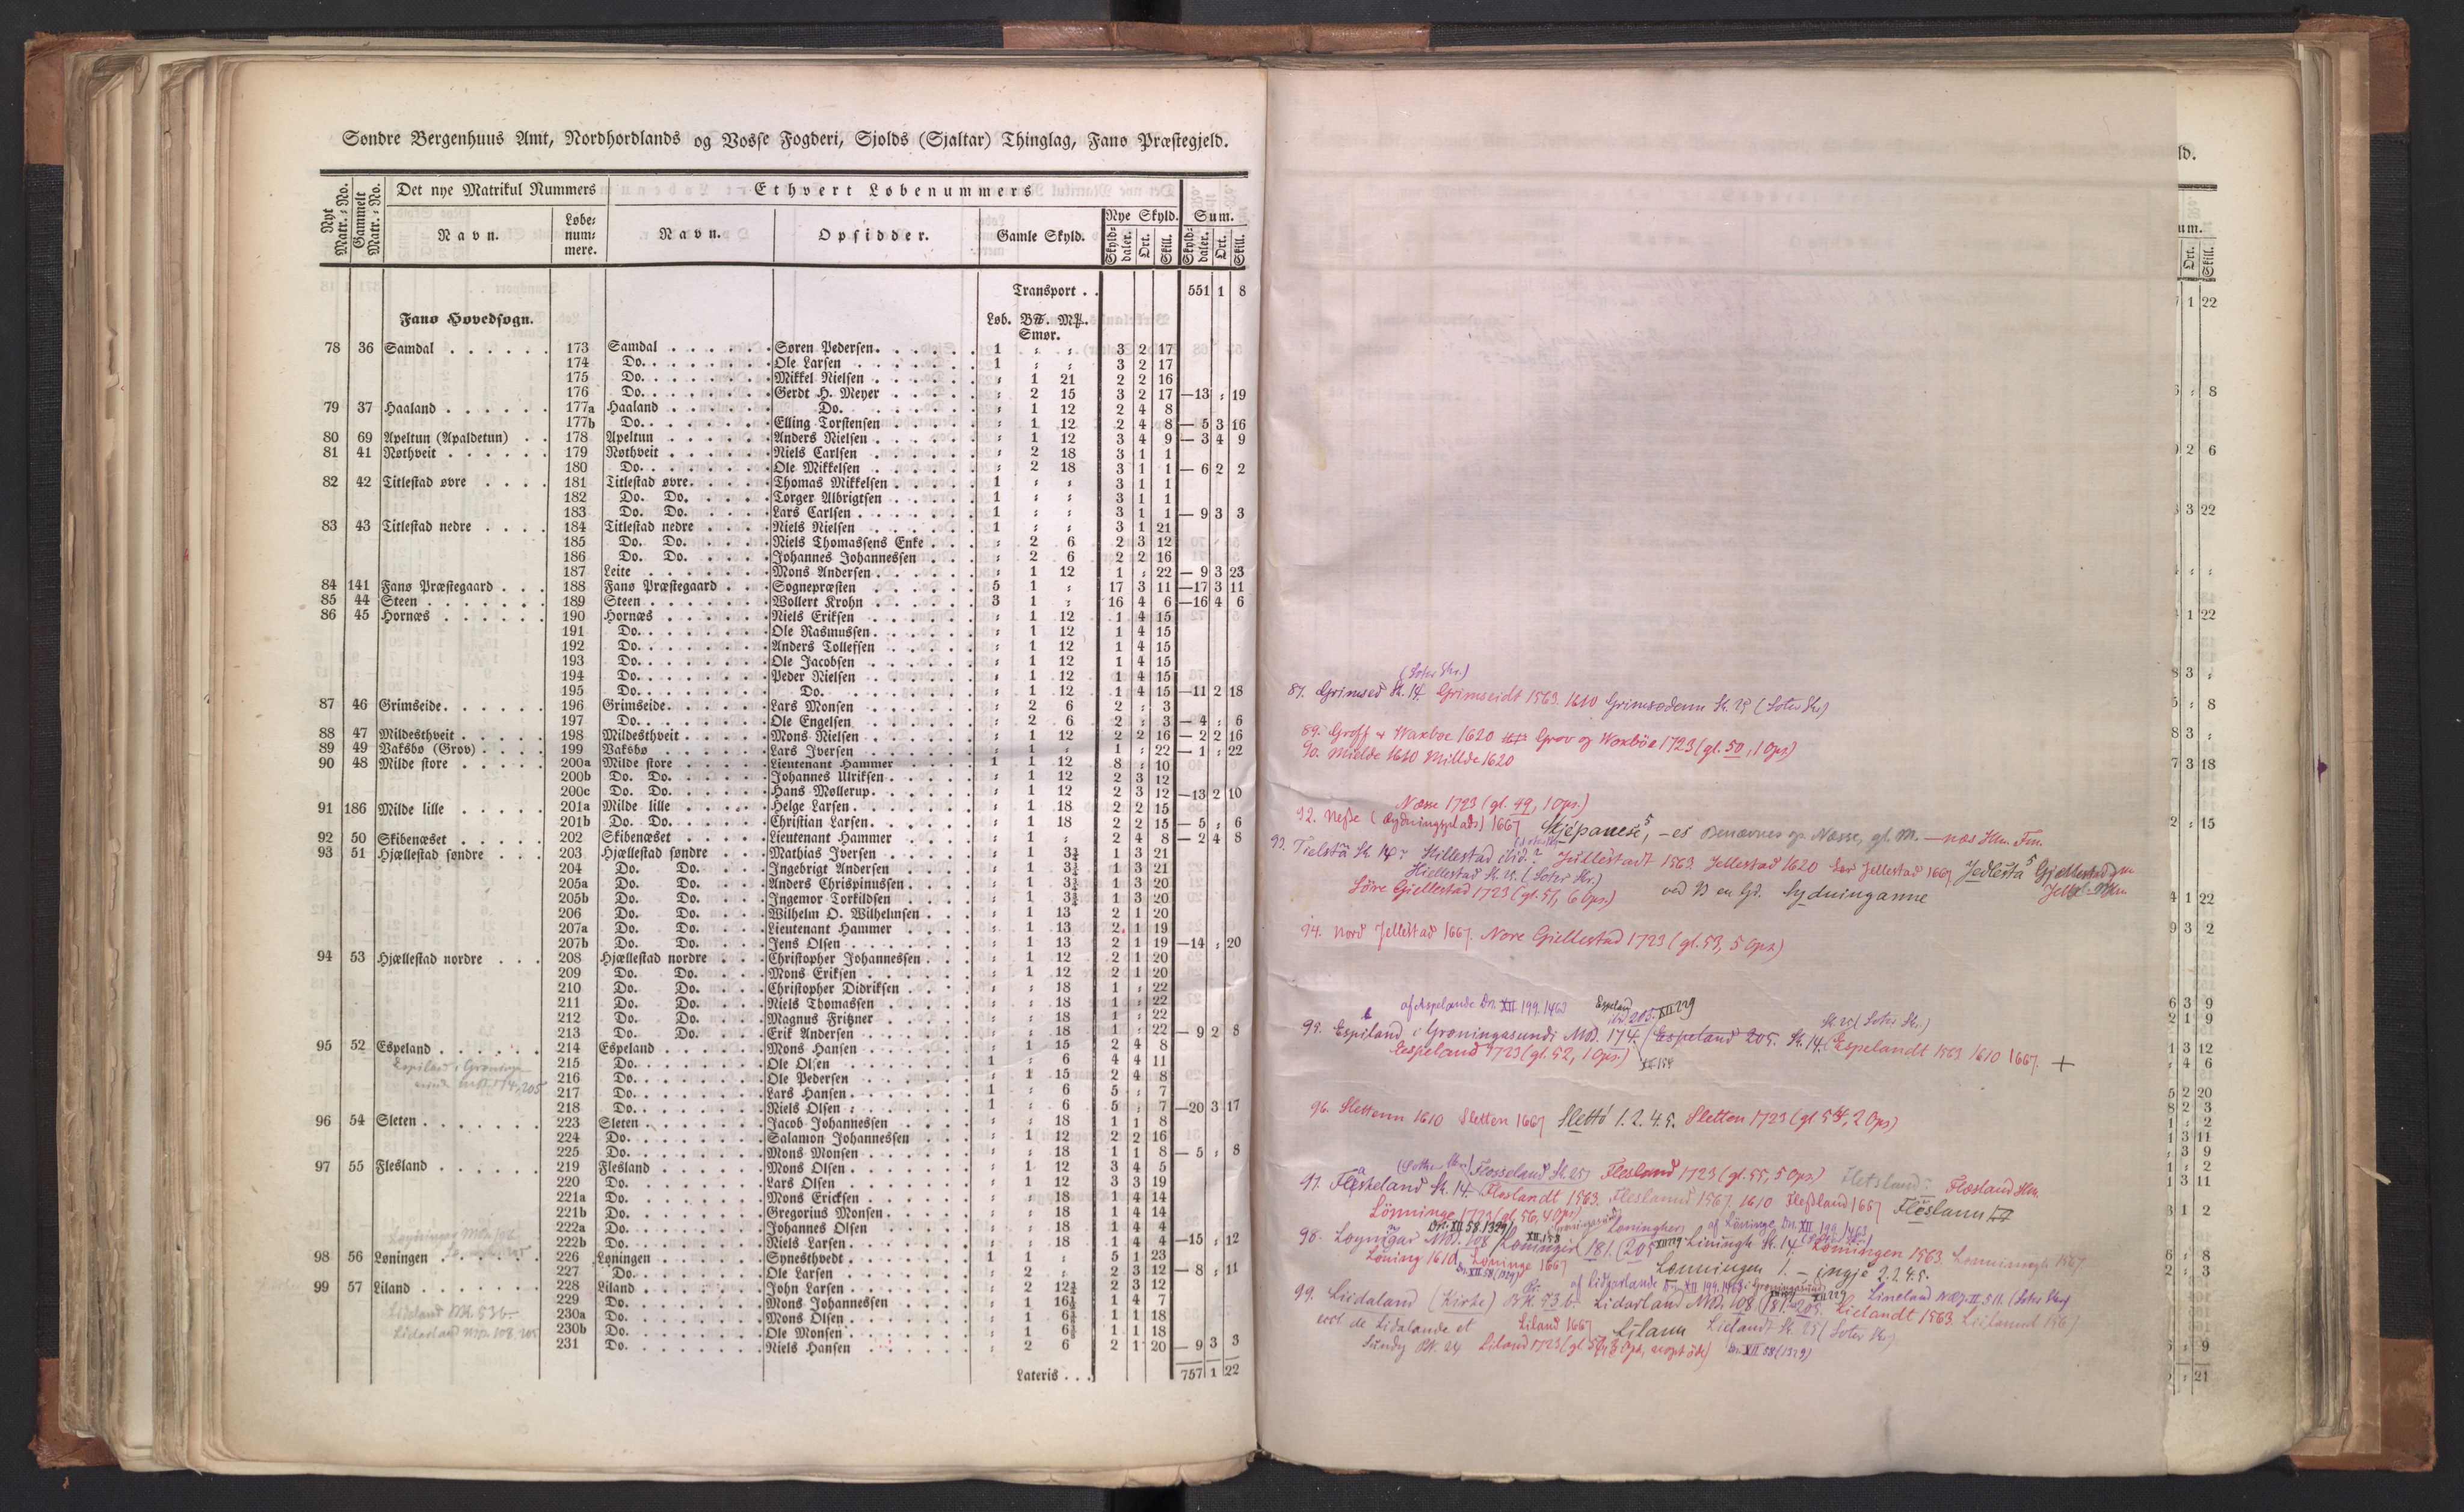 Søndre Bergenhuus Amt, Nordhordlands og Vosse Fogderi, Sjolds (Sjaltar) Thinglag, Fanø Præstegjeld.
Nyt Matr.-No. Gammelt Matr.-No. Det nye Matrikul Nummers Ethvert Løbenummers
Navn. Løbe-nummere. Navn. Opsidder. Gamle Skyld. Nye Skyld. Sum.
Skylddaler. Ort. Skill. Skylddaler. Ort. Skill.
Transport . . 551 1 8
Fanø Hovedsogn. Løb. B℔. M℔.
Smør.
78 36 Samdal 173 Samdal Søren Pedersen 1 : : 3 2 17
174 Do. Ole Larsen 1 : : 3 2 17
175 Do. Mikkel Nielsen : 1 21 2 2 16
176 Do. Gerdt H. Meyer : 2 15 3 2 17 —13 : 19
79 37 Haaland 177a Haaland Do. : 1 12 2 4 8
177b Do. Elling Torstensen : 1 12 2 4 8 — 5 3 16
80 69 Apeltun (Apaldetun) 178 Apeltun Anders Nielsen : 1 12 3 4 9 — 3 4 9
81 41 Nøthveit 179 Nøthveit Niels Carlsen : 2 18 3 1 1
180 Do. Ole Mikkelsen : 2 18 3 1 1 — 6 2 2
82 42 Titlestad øvre 181 Titlestad øvre Thomas Mikkelsen 1 : : 3 1 1
182 Do. Do. Torger Albrigtsen 1 : : 3 1 1
183 Do. Do. Lars Carlsen 1 : : 3 1 1 — 9 3 3
83 43 Titlestad nedre 184 Titlestad nedre Niels Nielsen 1 : : 3 1 21
185 Do. Do. Niels Thomassens Enke : 2 6 2 3 12
186 Do. Do. Johannes Johannessen : 2 6 2 2 16
187 Leite Mons Andersen : 1 12 1 : 22 — 9 3 23
84 141 Fanø Præstegaard 188 Fanø Præstegaard Sognepræsten 5 1 : 17 3 11 —17 3 11
85 44 Steen 189 Steen Wollert Krohn 3 1 : 16 4 6 —16 4 6
86 45 Hornæs 190 Hornæs Niels Eriksen : 1 12 1 4 15
191 Do. Ole Rasmussen : 1 12 1 4 15
192 Do. Anders Tollefsen : 1 12 1 4 15
193 Do. Ole Jacobsen : 1 12 1 4 15
194 Do. Peder Nielsen : 1 12 1 4 15
195 Do. Do. : 1 12 1 4 15 —11 2 18
87 46 Grimseide 196 Grimseide Lars Monsen : 2 6 2 : 3
197 Do. Ole Engelsen : 2 6 2 : 3 — 4 : 6
88 47 Mildesthveit 198 Mildesthveit Mons Nielsen : 1 12 2 2 16 — 2 2 16
89 49 Vaksbø (Grov) 199 Vaksbø Lars Iversen : 1 : 1 : 22 — 1 : 22
90 48 Milde store 200a Milde store Lieutenant Hammer 1 1 12 8 : 10
200b Do. Do. Johannes Ulriksen : 1 12 2 3 12
200c Do. Do. Hans Møllerup : 1 12 2 3 12 —13 2 10
91 186 Milde lille 201a Milde lille Helge Larsen : 1 18 2 2 15
201b Do. Do. Christian Larsen : 1 18 2 2 15 — 5 : 6
92 50 Skibenæset 202 Skibenæset Lieutenant Hammer : 1 : 2 4 8 — 2 4 8
93 51 Hjællestad søndre 203 Hjællestad søndre Mathias Iversen : 1 3¾ 1 3 21
204 Do. Do. Ingebrigt Andersen : 1 3¾ 1 3 21
205a Do. Do. Anders Chrispinussen : 1 3¾ 1 3 20
205b Do. Do. Ingemor Torkildsen : 1 3¾ 1 3 20
206 Do. Do. Wilhelm O. Wilhelmsen : 1 13 2 1 20
207a Do. Do. Lieutenant Hammer : 1 13 2 1 19
207b Do. Do. Jens Olsen : 1 13 2 1 19 —14 : 20
94 53 Hjællestad nordre 208 Hjællestad nordre Christopher Johannessen : 1 12 2 1 20
209 Do. Do. Mons Eriksen : 1 12 2 1 20
210 Do. Do. Christopher Didriksen : : 18 1 : 22
211 Do. Do. Niels Thomassen : : 18 1 : 22
212 Do. Do. Magnus Fritzner : : 18 1 : 22
213 Do. Do. Erik Andersen : : 18 1 : 22 — 9 2 8
95 52 Espeland 214 Espeland Mons Hansen : 1 15 2 4 8
215 Do. Ole Olsen 1 : 6 4 4 11
216 Do. Ole Pedersen : 1 15 2 4 8
217 Do. Lars Hansen 1 : 6 5 : 7
218 Do. Niels Olsen 1 : 6 5 : 7 —20 3 17
96 54 Sleten 223 Sleten Jacob Johannessen : : 18 1 1 8
224 Do. Salamon Johannessen : 1 12 2 2 16
225 Do. Mons Monsen : : 18 1 1 8 — 5 : 8
97 55 Flesland 219 Flesland Mons Olsen : 1 12 3 4 5
220 Do. Lars Olsen : 1 12 3 3 19
221a Do. Mons Ericksen : : 18 1 4 14
221b Do. Gregorius Monsen : : 18 1 4 14
222a Do. Johannes Olsen : : 18 1 4 4
222b Do. Niels Larsen : : 18 1 4 4 —15 : 12
98 56 Løningen 226 Løningen Synesthvedt 1 1 : 5 1 23
227 Do. Ole Larsen : 2 : 2 3 12 — 8 : 11
99 57 Liland 228 Liland John Larsen : 2 12¾ 2 3 12
229 Do. Mons Johannessen : 1 16½ 1 4 7
230a Do. Mons Olsen : 1 6¾ 1 1 18
230b Do. Ole Monsen : 1 6¾ 1 1 18
231 Do. Niels Hansen : 2 6 2 1 20 — 9 3 3
Lateris . . . 757 1 22
(Soter Skr.)
87. Grimsed St. 14 Grimseidt 1563. 1610 Grimsodenn St. 25 (Soter Skr)
89. Groff & Waxboe 1620 Grov og Woxböe 1723 (gl. 50, 1 Ops)
90. Mielde 1610 Millde 1620
Næsse 1723 (gl. 49, 1 Ops.)
92. Neße (Rydningsplads) 1667 Benævnes op. Næsse, gl. M. — næs Hlm. Fm.
Hillestad ibid? Jullestadt 1563 Jellestad 1620 Jellestad 1667
Hiellestad St. 25. (Soter Skr.)
Söre Giellestad 1723 (gl. 51, 6 Ops.) ved 93 en Gd. Sydninganne
94. Nord Jellestad 1667. Nore Giellestad 1723 (gl. 53, 5 Ops)
af Aspelande Dn. XII 199. 1463 Espeland
95. Espiland i Grøningasundi MD. 174. (Espeland 205. St. 14. Espelandt 1563 1610 1667. +
Eespeland 1723 (gl. 52, 1 Ops.)
96. Slettenn 1610 Sletten 1667 Slettó 1. 2. 4. 5. Sletten 1723 (gl 54, 2 Ops)
Flosseland St. 25) Flesland 1723 (gl. 55, 5 Ops) Fletsland: Flæsland Hlm.
97. Fleskeland St. 14. Fleslandt 1563. Fleslannd 1567. 1610 Fleßland 1667 Fleslann
Lönninge 1723 (gl. 56, 4 Ops)
98. Loyningar MD. 108 181. (205 Liningh St. 14 Lönningen 1563. 1567
Løning 1610 Løninge 1667 Lonningen 1. — ingjé 2. 2. 4. 5.
99. Liidaland (Kirke) BK. 73 b. Lidarland MD. 108 181. 205. Lielandt 1563. Liilannd 1567
eccl. de Lidalande et Liland 1667 Lilann Lielandt St. 25 (Soter Skr)
Sundz BK. 24 Liland 1723 (gl. 57, Dn. XII 58 (1329)